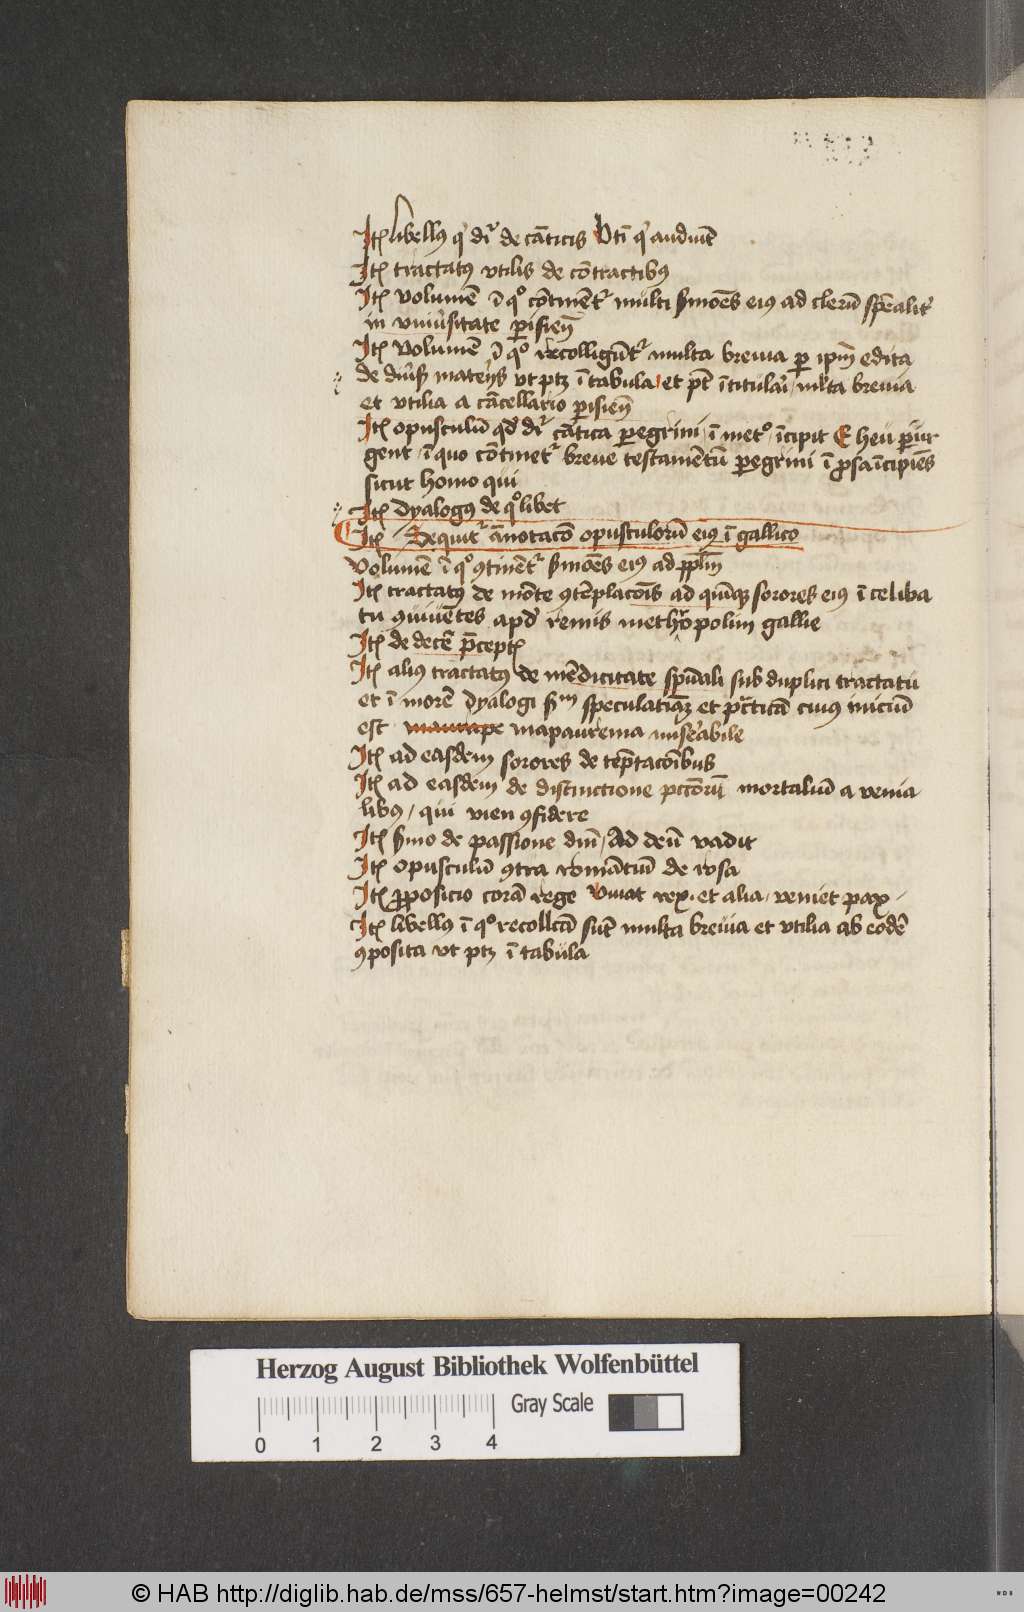 Itẽ libellꝰ q̇ dr̃ de cãticis Vtĩ q̇ audiuĩt
Itẽ tractatꝰ vtilis de cõtractibꝰ
Itẽ volumẽ ĩ qͦ cõtinẽtͬ multi smões eiꝰ ad clerũ spẽalitͬ
in vniũsitate p̱isieñ
Itẽ volumẽ ĩ qͦ recolligũtͬ multa breuia p̱ ipm̃ edita
de diũs̃ mateijs vt ptꝫ ĩ tabula et pt̃ ĩtitulai ml̃ta breuia
et vtilia a cãcellario p̱isieñ
Itẽ opusculũ qd̃ dr̃ cãtica p̱egrini ĩ metͦ ĩcipit E heu
gent ĩ quo cõtinetͬ breue testamẽtũ p̱egrini ĩ ꝓsa ĩcipiẽs
sicut homo qui
Itẽ dyalogꝰ de qͦlibet
Itẽ Sequitͬ ãnotacõ opusculorũ eiꝰ ĩ gallico
Volumẽ ĩ qͦ ꝯtinẽtͬ smões eiꝰ ad ppl̃m
Itẽ tractatꝰ de mõte ꝯtẽplacõis ad quĩqꝫ sorores eiꝰ ĩ celiba
tu ꝯuiuẽtes apd̃ remis methropolim gallie
Itẽ de decẽ p̃ceptꝭ
Itẽ aliꝰ tractatꝰ de mẽdicitate spũali sub duplici tractatu
et ĩ morẽ dyalogi sᵐ speculatiuã et pr̃cticã cuiꝰ iniciũ
est mapaurema miserabile
Itẽ ad easdem sorores de tẽptacõibus
Itẽ ad easdem de distinctione pccõrũ mortaliũ a venia
libꝰ / qui vien ꝯfidere
Itẽ smo de passione dnĩ / Ad deũ vadit
Itẽ opusculũ ꝯtra romãciũ de rosa
Itẽ ꝓposicio corã rege viuat rex · et alia · veniet pax
Itẽ libellꝰ ĩ qͦ recollcã sũt multa breuia et vtilia ab eodẽ
ꝯposita vt ptꝫ ĩ tabula
Herzog August Bibliothek Wolfenbüttel
Gray Scale
0 1 2 3 4
© HAB http://diglib.hab.de/mss/657-helmst/start.htm?image=00242